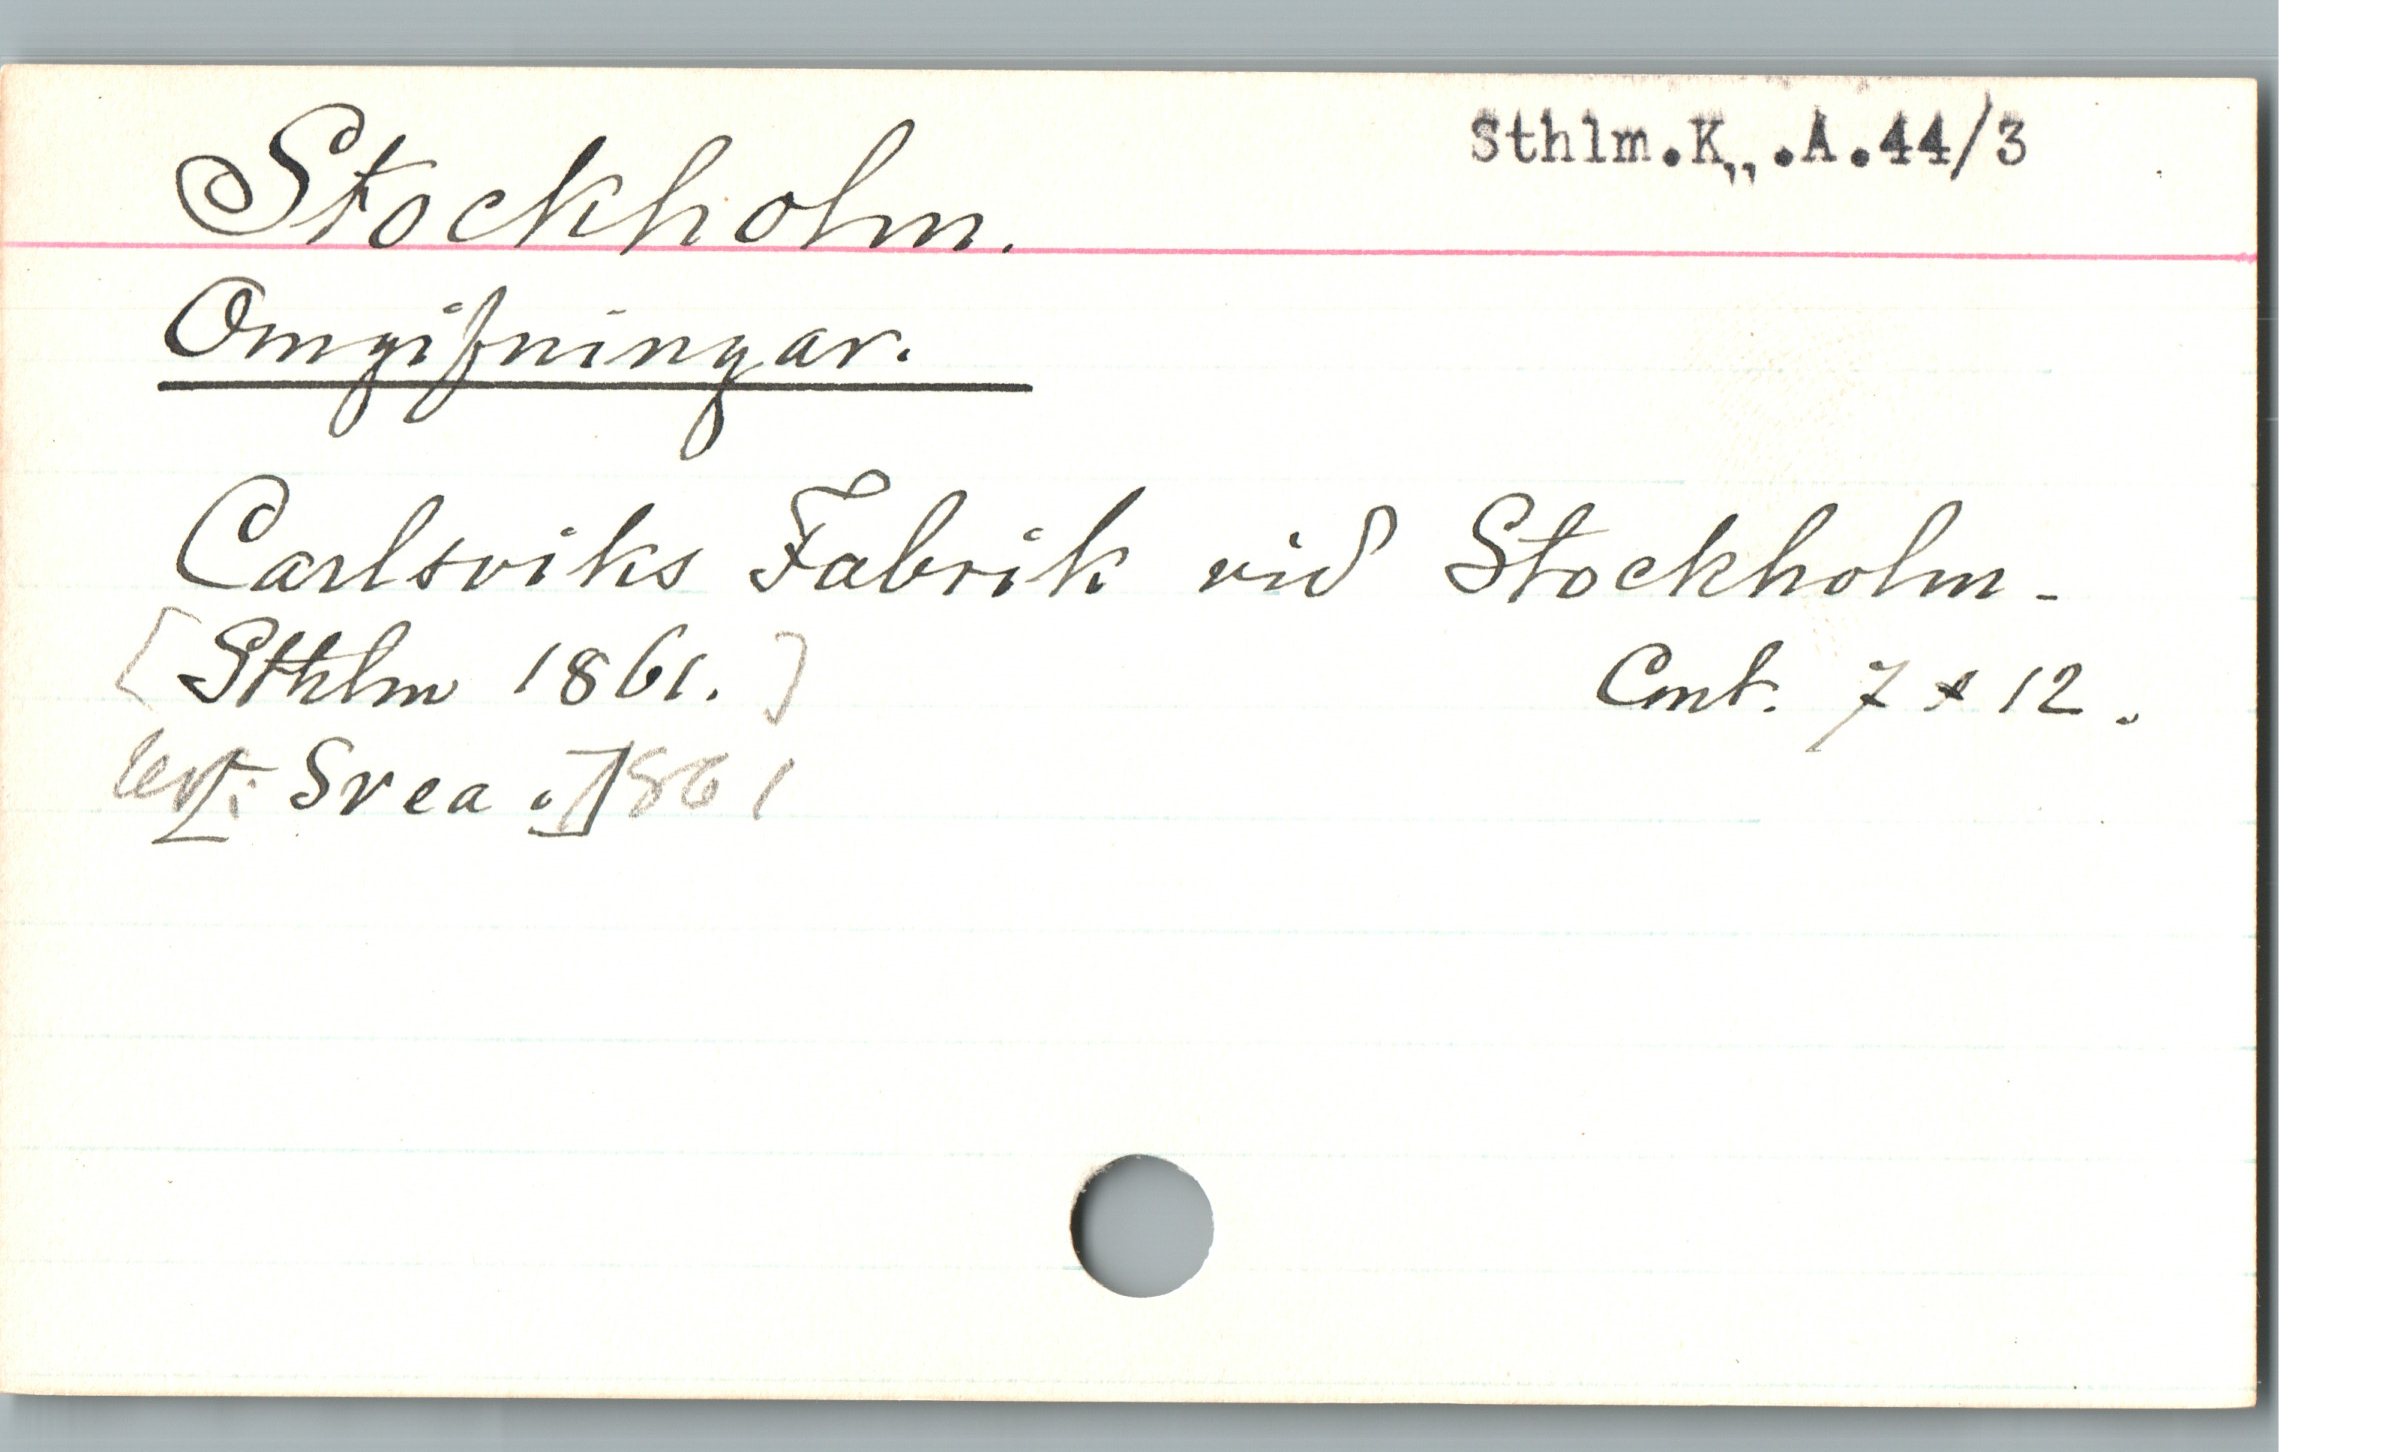 Stockholm.
Sthlm.K,,.A.44/3
Omgifningar.
Carlsviks Fabrik vid Stockholm.
[Sthlm 1861.]
Cmt. 7 x 12.
Svea.] 1861